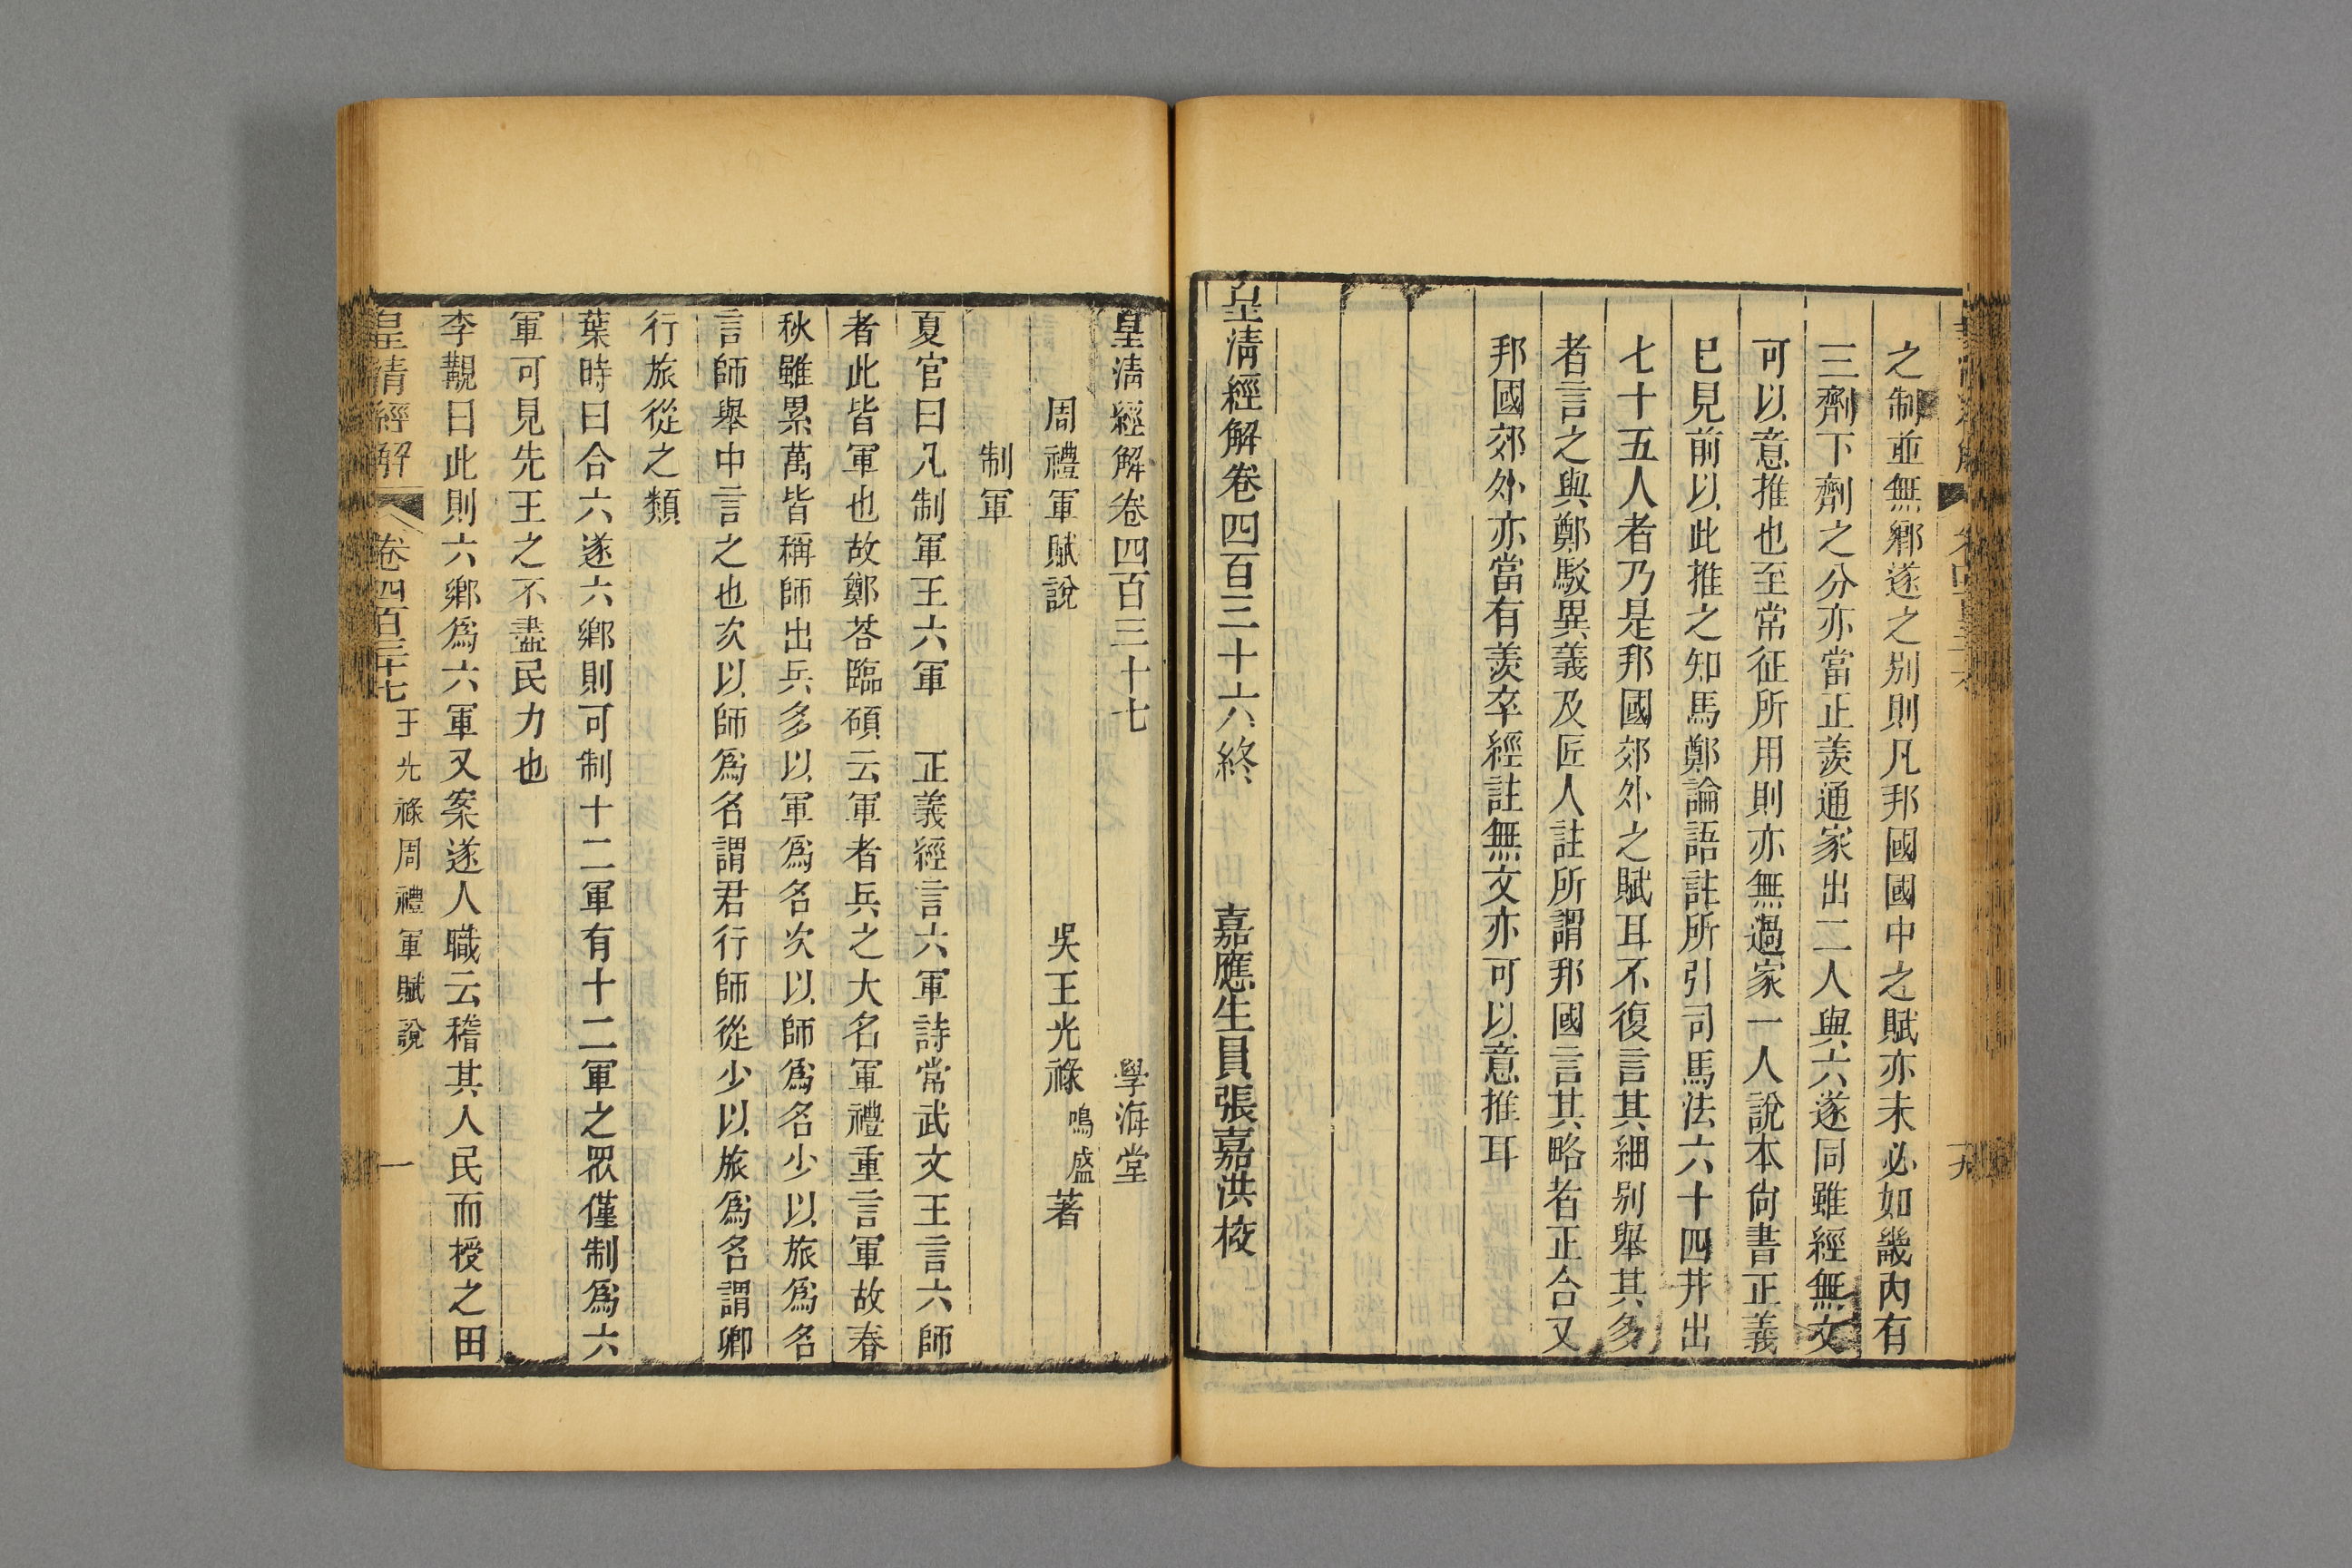 之制並無鄉遂之別則凡邦國國中之賦亦未必如畿內有
三劑下劑之分亦當正羨通家出二人與六遂同雖經無文
可以意推也至常征所用則亦無過家一人說本尙書正義
巳見前以此推之知馬鄭論語註所引司馬法六十四井出
七十五人者乃是邦國郊外之賦耳不復言其細別舉其多
者言之與鄭駁異義及匠人註所謂邦國言其略者正合又
邦國郊外亦當有羨卒經註無文亦可以意推耳
皇淸經解卷四百三十六終 嘉應生員張嘉洪校
十九
皇淸經解卷四百三十七 學海堂
周禮軍賦說 吳王光祿鳴盛著
制軍
夏官曰凡制軍王六軍 正義經言六軍詩常武文王言六師
者此皆軍也故鄭荅臨碩云軍者兵之大名軍禮重言軍故春
秋雖累萬皆稱師出兵多以軍爲名次以師爲名少以旅爲名
言師舉中言之也次以師爲名謂君行師從少以旅爲名謂卿
行旅從之類
葉時曰合六遂六鄉則可制十二軍有十二軍之眾僅制爲六
軍可見先王之不盡民力也
李覯曰此則六鄉爲六軍又案遂人職云稽其人民而授之田
皇清經解 卷四百三十七 王光祿周禮軍賦說 一